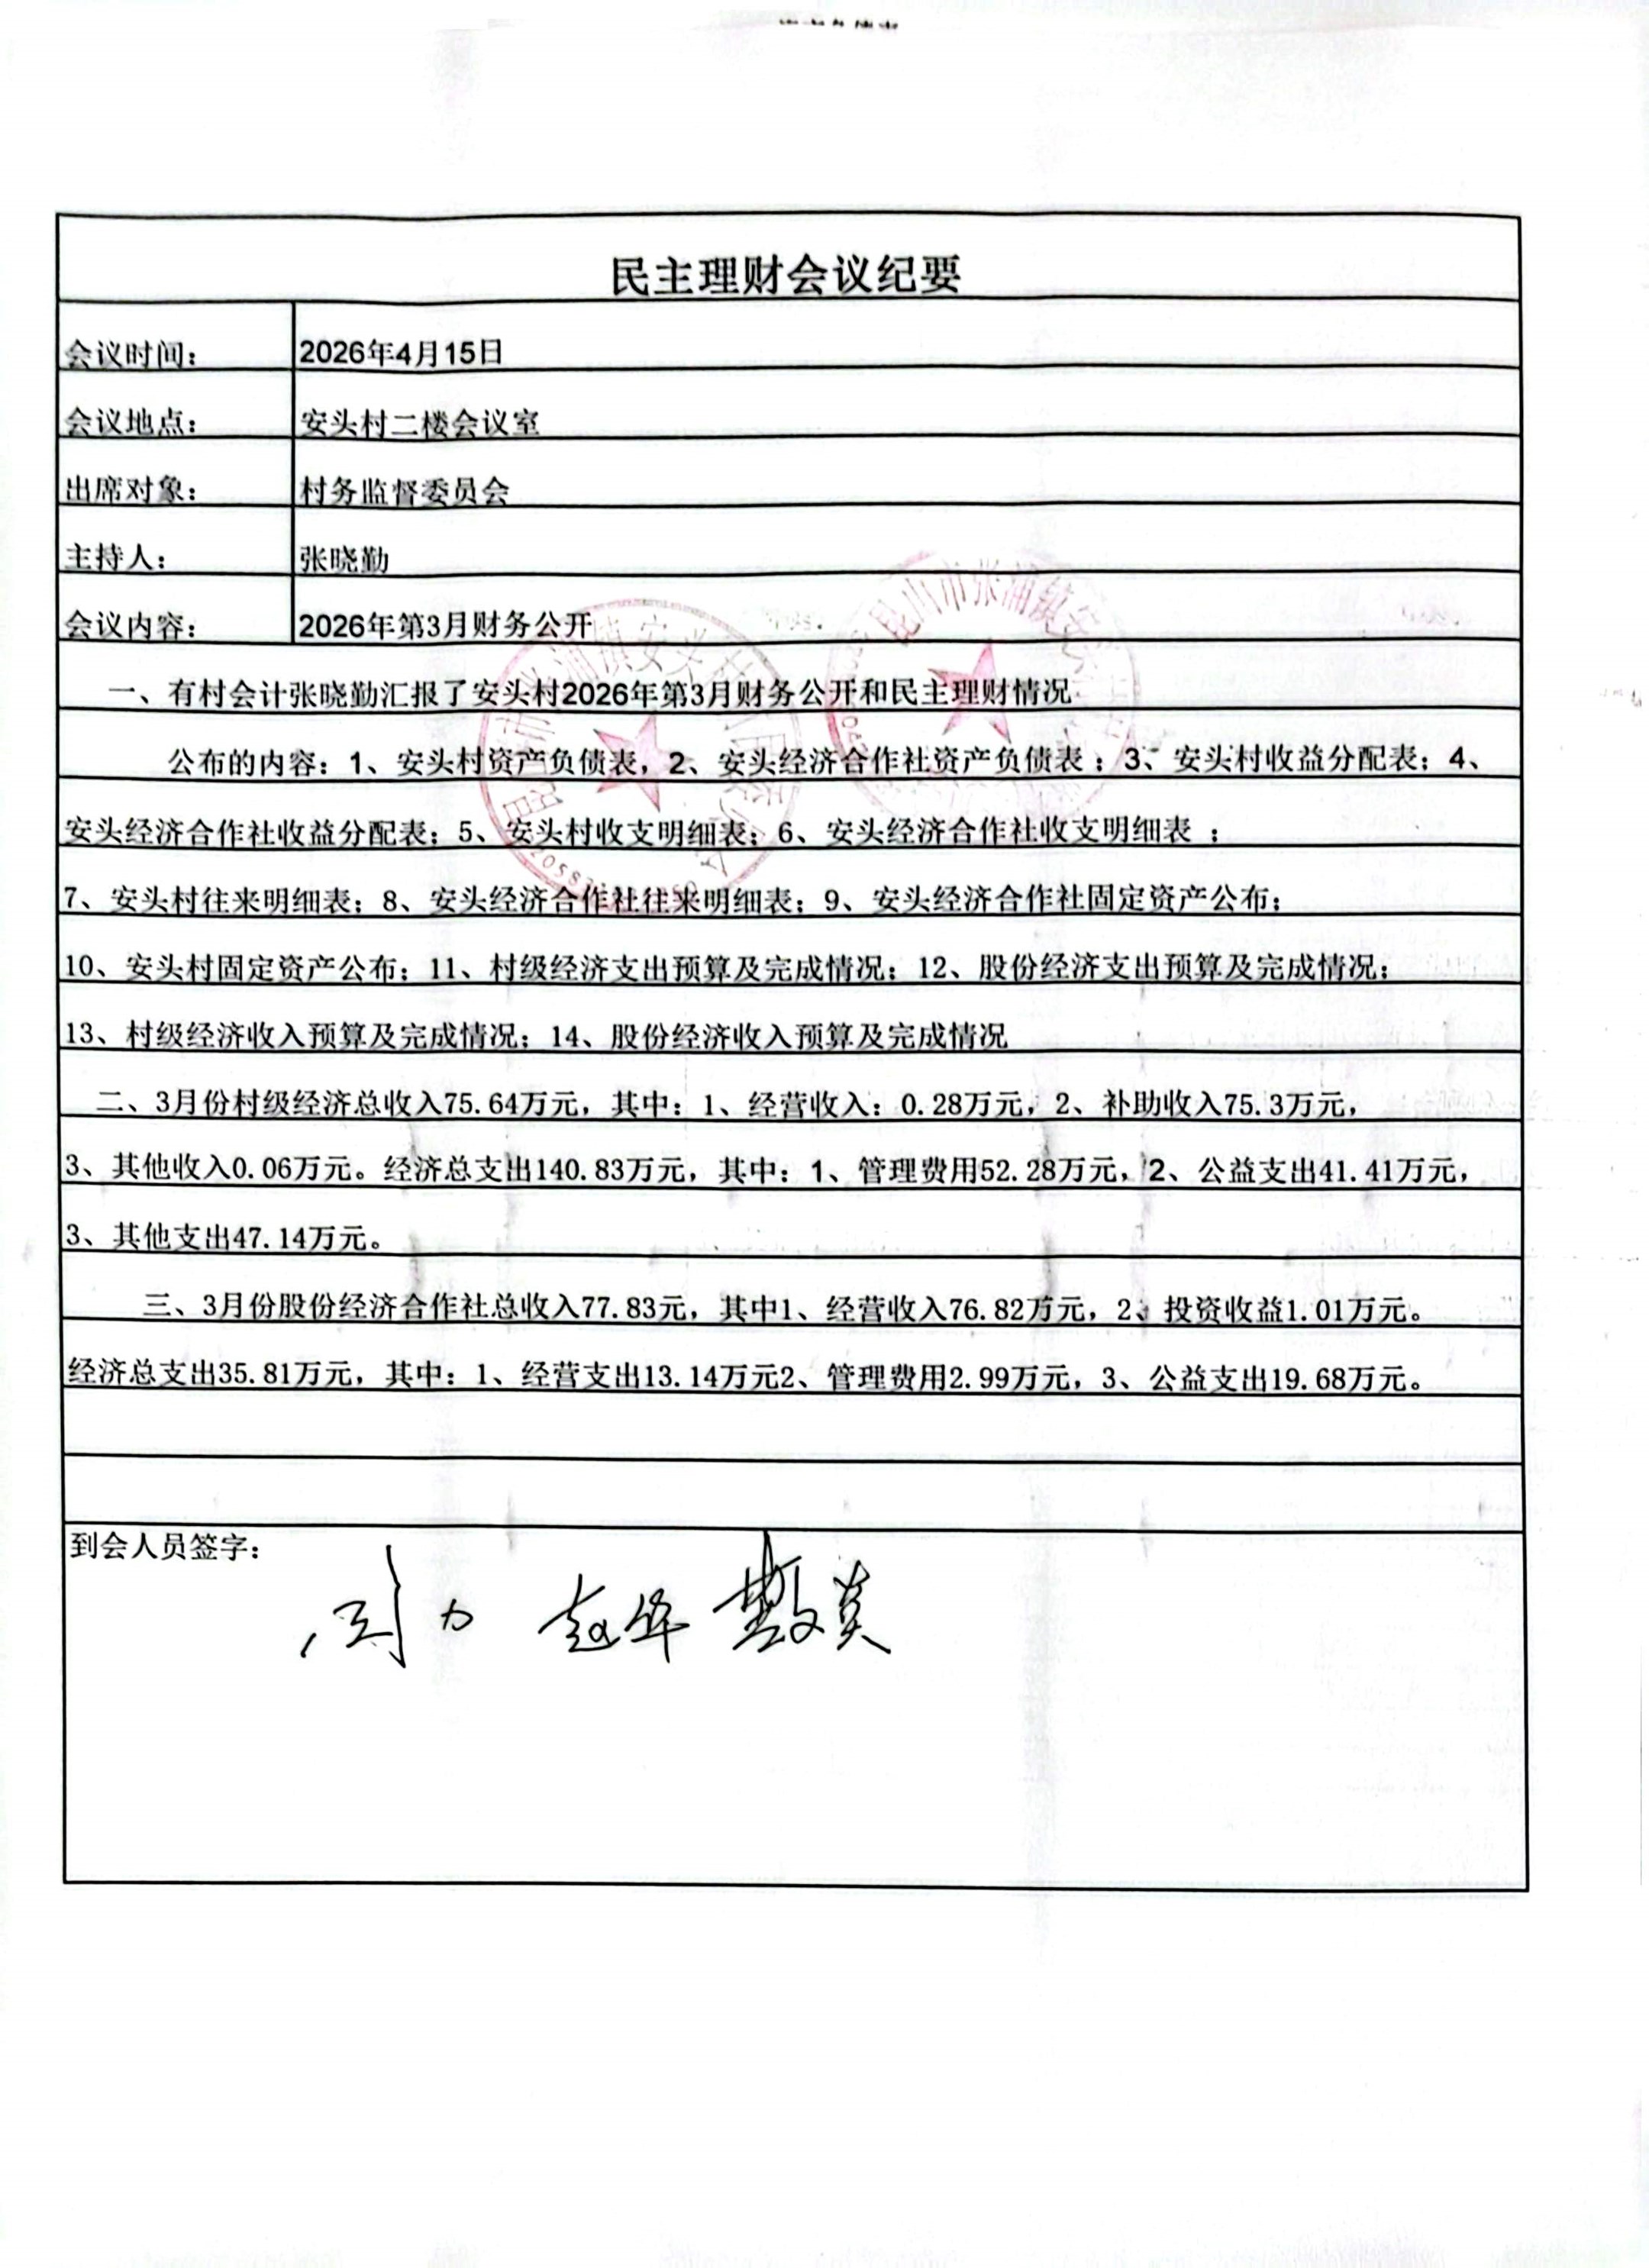 民主理财会议纪要
会议时间： 2026年4月15日
会议地点： 安头村二楼会议室
出席对象： 村务监督委员会
主持人： 张晓勤
会议内容： 2026年第3月财务公开
一、有村会计张晓勤汇报了安头村2026年第3月财务公开和民主理财情况
公布的内容：1、安头村资产负债表，2、安头经济合作社资产负债表；3、安头村收益分配表；4、
安头经济合作社收益分配表；5、安头村收支明细表；6、安头经济合作社收支明细表 ；
7、安头村往来明细表；8、安头经济合作社往来明细表；9、安头经济合作社固定资产公布；
10、安头村固定资产公布；11、村级经济支出预算及完成情况；12、股份经济支出预算及完成情况；
13、村级经济收入预算及完成情况；14、股份经济收入预算及完成情况
二、3月份村级经济总收入75.64万元，其中：1、经营收入：0.28万元，2、补助收入75.3万元，
3、其他收入0.06万元。经济总支出140.83万元，其中：1、管理费用52.28万元，2、公益支出41.41万元，
3、其他支出47.14万元。
三、3月份股份经济合作社总收入77.83元，其中1、经营收入76.82万元，2、投资收益1.01万元。
经济总支出35.81万元，其中：1、经营支出13.14万元2、管理费用2.99万元，3、公益支出19.68万元。
到会人员签字：